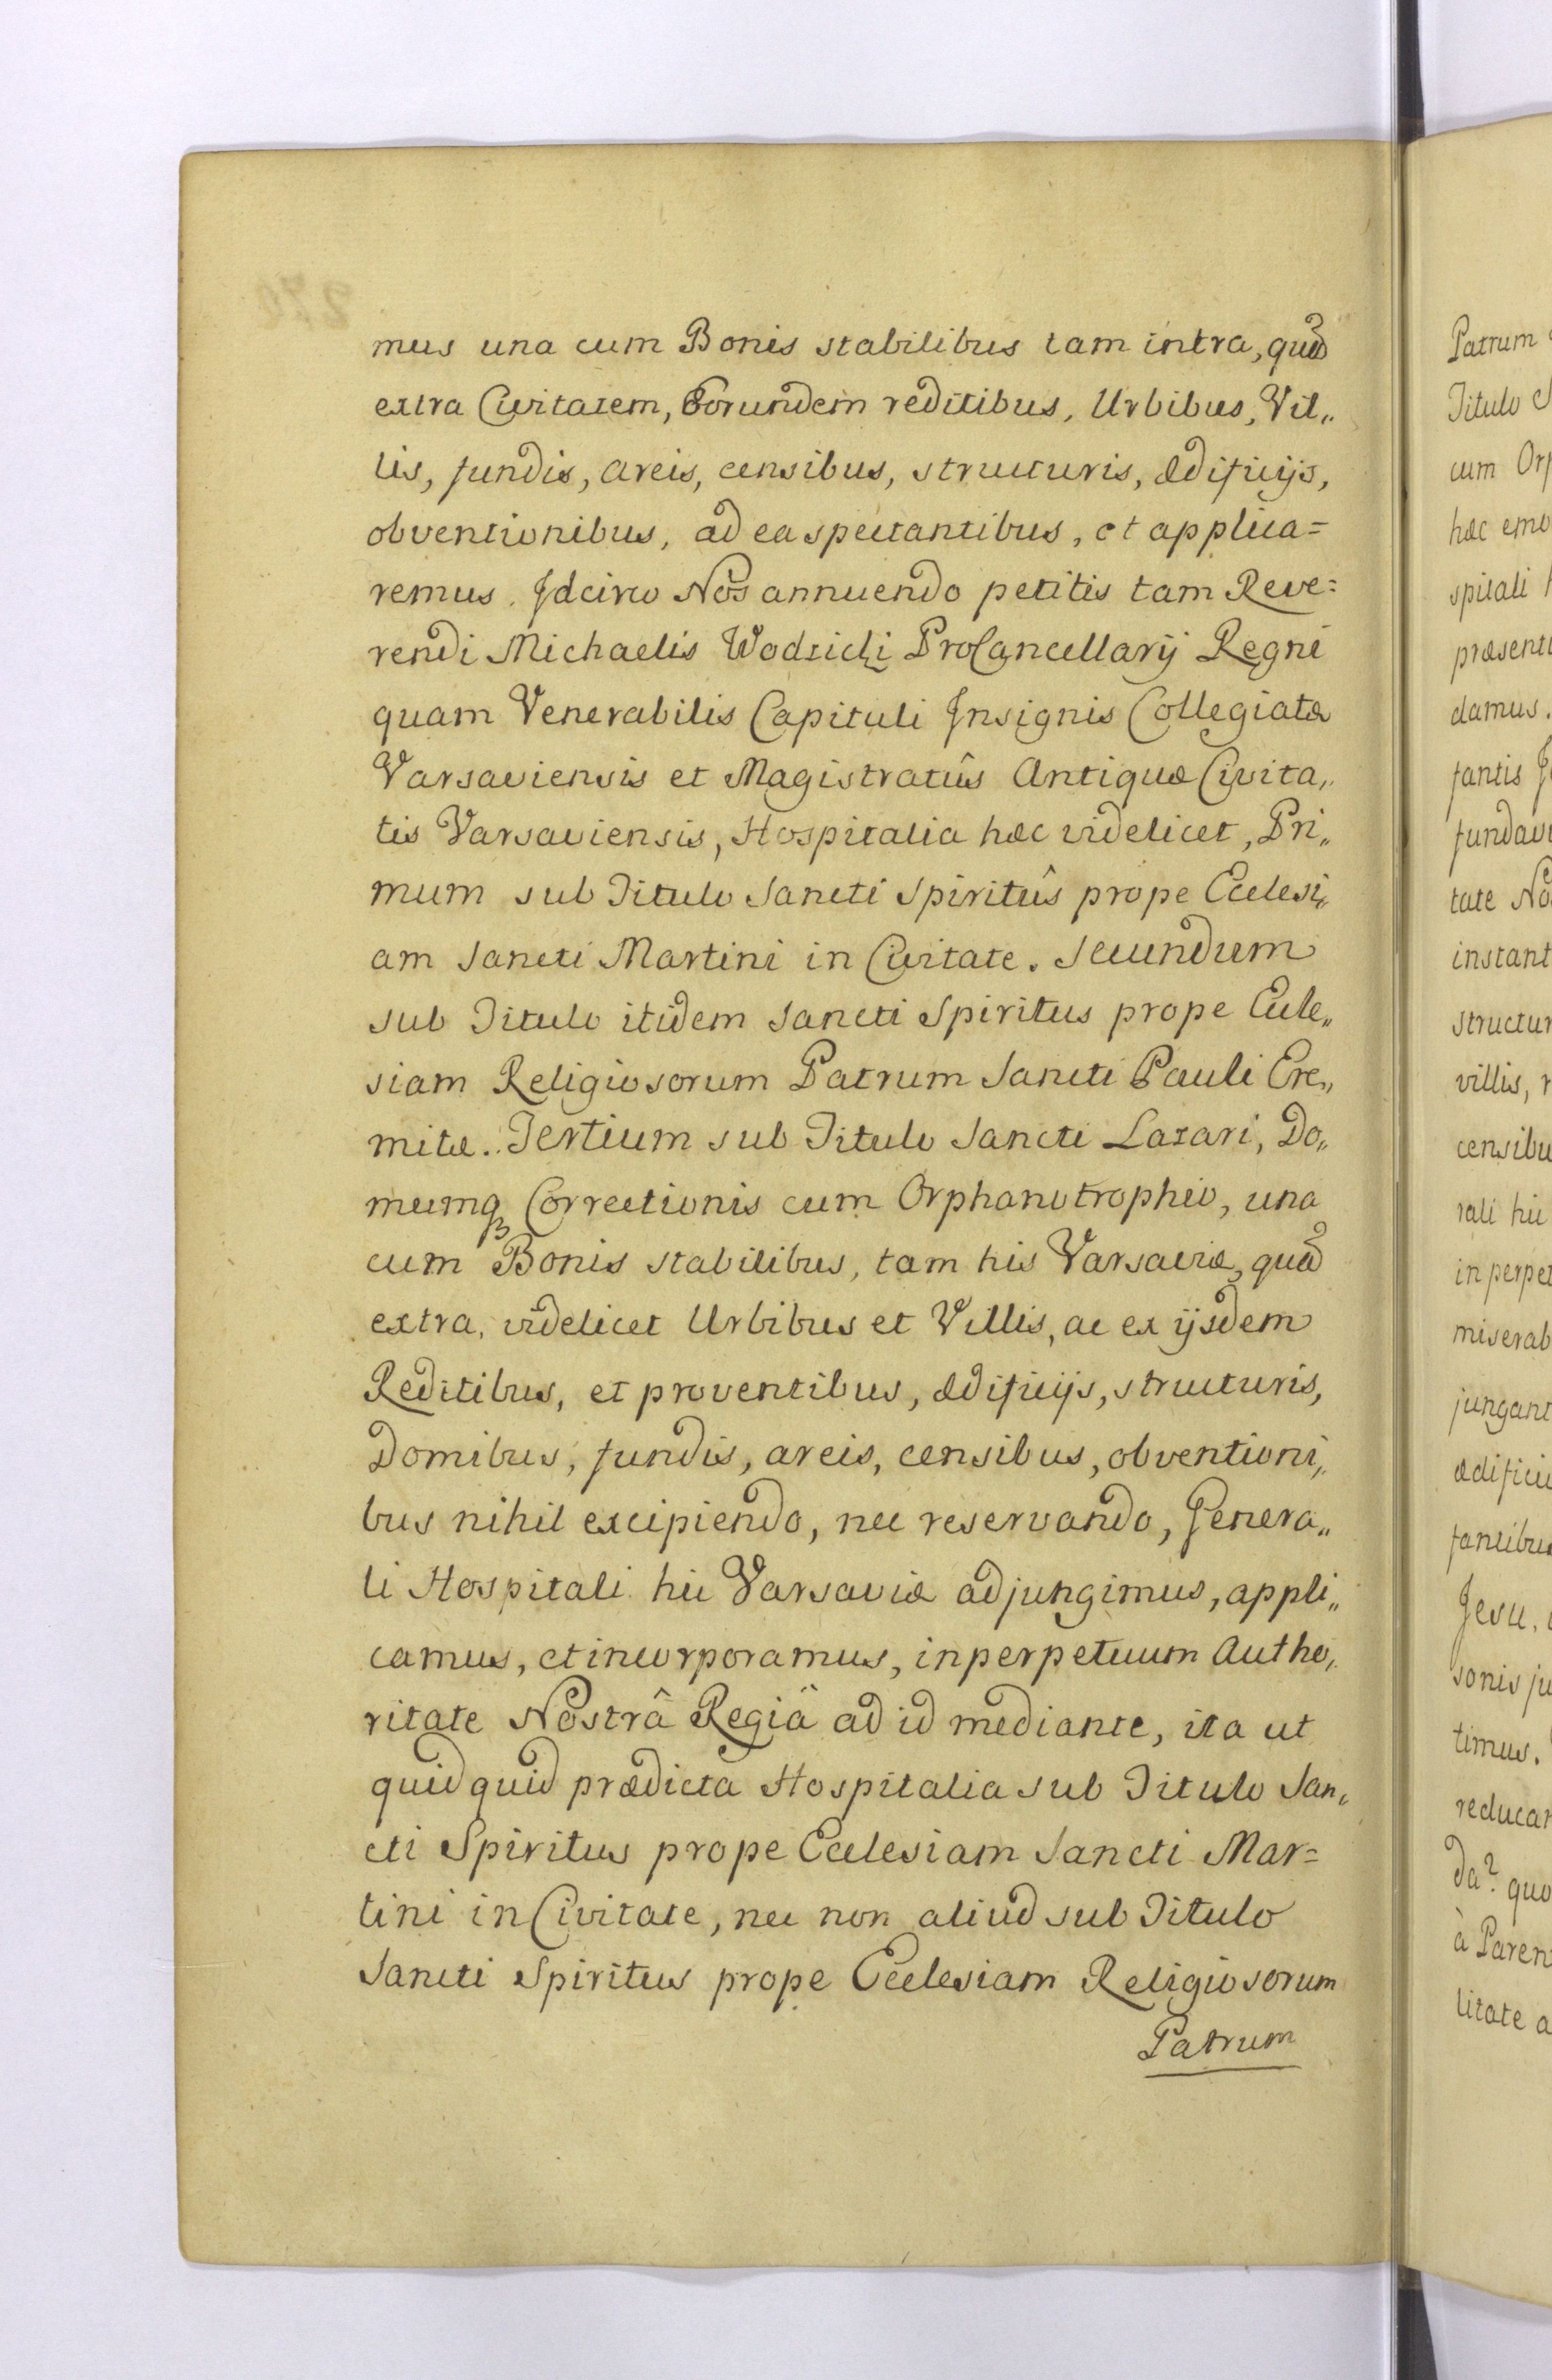 mus una cum Bonis stabilibus tam intra, quã
extra Civitatem, Eorundem reditibus, Urbibus, Vil„
lis, fundis, areis, censibus, structuris, ædificijs,
obventionibus, ad ea spectantibus, et applica=
remus. Idcirco Nos annuendo petitis tam Reve=
rendi Michaelis Wodzicki ProCancellarij Regni
quam Venerabilis Capituli Insignis Collegiatæ
Varsaviensis et Magistratûs Antiquæ Civita„
tis Varsaviensis, Hospitalia hæc videlicet, Pri„
mum sub Titulo Sancti Spiritûs prope Ecclesi„
am Sancti Martini in Civitate. Secundum
sub Titulo itidem Sancti Spiritus prope Eccle„
siam Religiosorum Patrum Sancti Pauli Ere„
mitæ. Tertium sub Titulo Sancti Lazari, Do„
mumq₃ Correctionis cum Orphanotropheo, una
cum Bonis stabilibus, tam his Varsaviæ, quã
extra, videlicet Urbibus et Villis, ac ex ijsdem
Reditibus, et proventibus, ædificijs, structuris,
Domibus, fundis, areis, censibus, obventioni„
bus nihil excipiendo, nec reservando, Genera„
li Hospitali hic Varsaviæ adjungimus, appli„
camus, et incorporamus, in perpetuum Autho„
ritate Nostrâ Regiâ ad id mediante, ita ut
quidquid prædicta Hospitalia sub Titulo San„
cti Spiritus prope Ecclesiam Sancti Mar=
tini in Civitate, nec non aliud sub Titulo
Sancti Spiritus prope Ecclesiam Religiosorum
Patrum
Patrum
Titulo
cum
hæc
spitali
damus.
fantis
tate
villis,
rali hic
Jesu,
sonis
timus.
da? quo
à
litate a